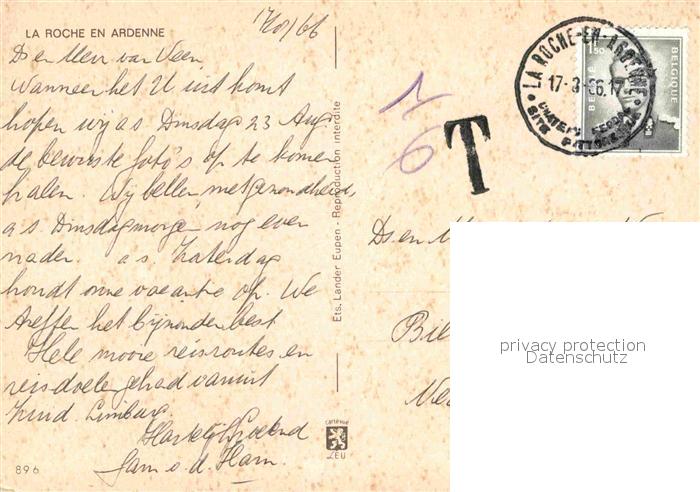 LA ROCHE EN ARDENNE
17/8/66
Ds en Mevr van Veen,
Wanneer het U uist komt
hopen wij a s Dinsdag 23 Aug.
de bewuste foto's op te komen
halen. Wij bellen
a s Dinsdagmorgen nog even
nader. a s. Zaterdag
houdt onze vacantie op. We
treffen het bijzonder best
Hele mooie reisroutes en
reisdoelen gehad vanuit
Zuid Limburg.
Hartelijk
Fam v. d. Ham.
896
Ets. Lander Eupen - Reproduction interdite
cartevue
LEU
1/6
T
LA ROCHE-EN-ARDENNE
17-8-66.17
SITE PITTORESQUE
1F50
BELGIË BELGIQUE
Ds en M
Bil
Ne
privacy protection
Datenschutz